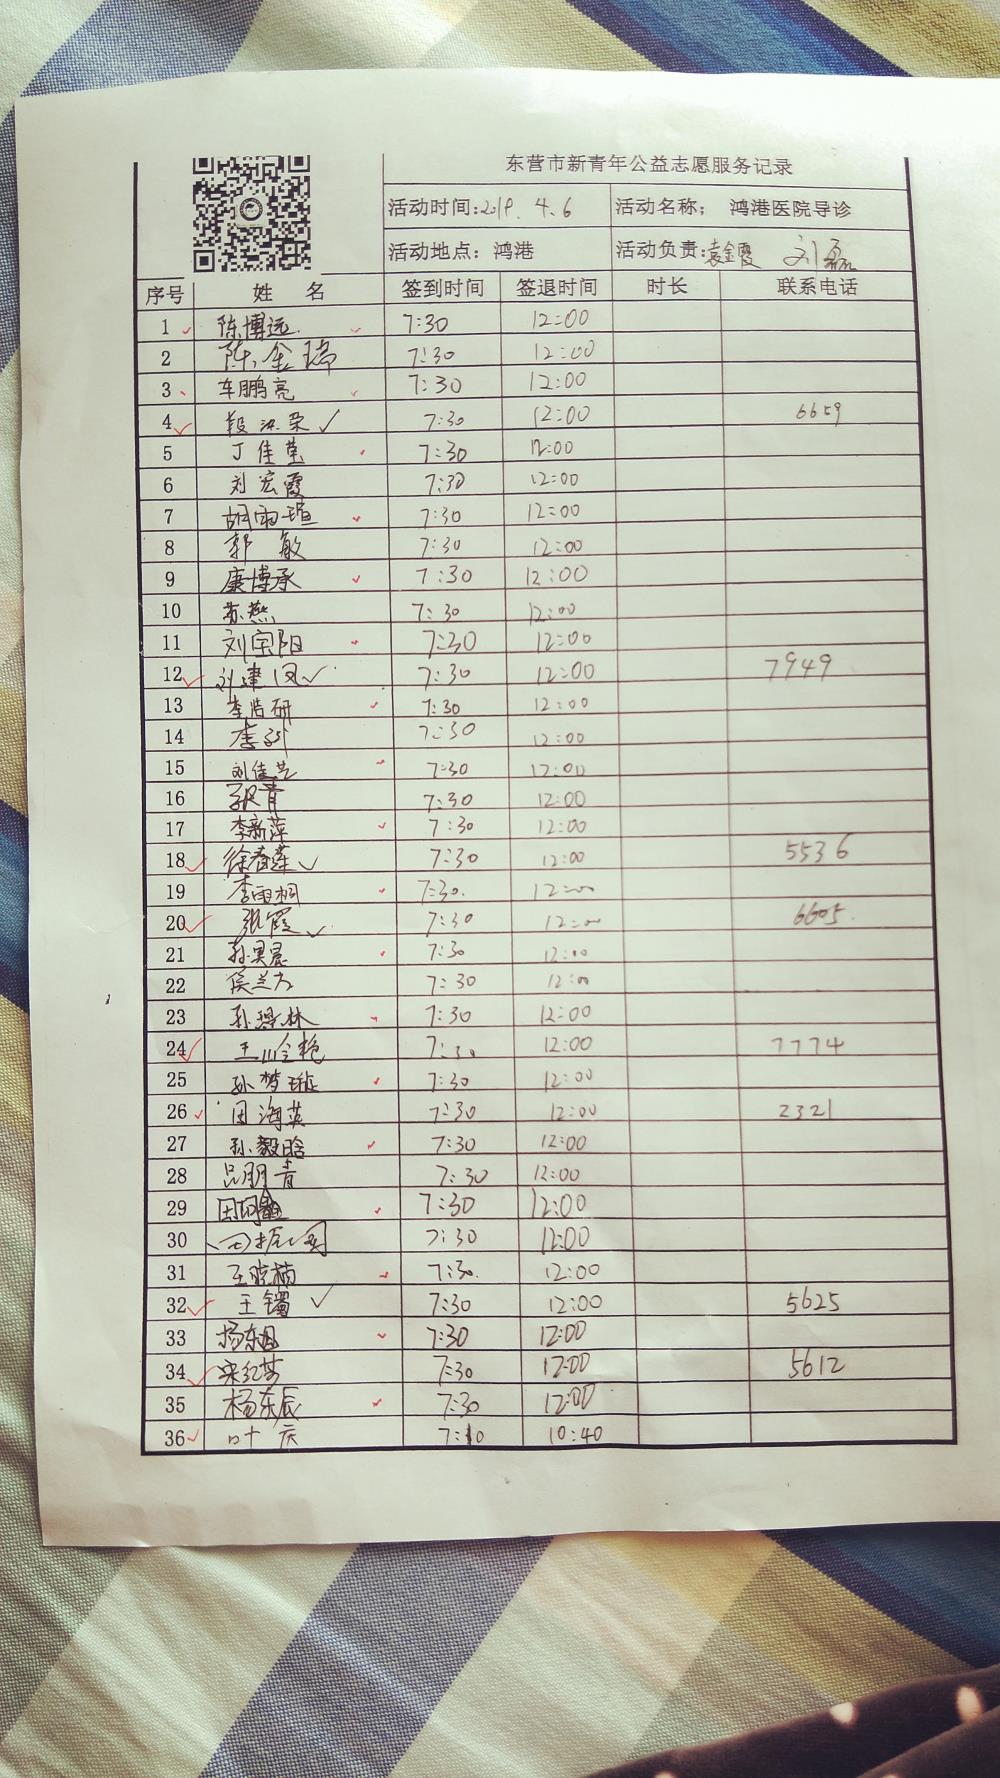 东营市新青年公益志愿服务记录
活动时间:2019.4.6 活动名称; 鸿港医院导诊
活动地点: 鸿港 活动负责:袁金霞 刘磊
序号 姓 名 签到时间 签退时间 时长 联系电话
1 陈博远 7:30 12:00
2 陈金瑞 7:30 12:00
3 车鹏亮 7:30 12:00
4 段洪荣 ✓ 7:30 12:00 6659
5 丁佳莹 7:30 12:00
6 刘宏霞 7:30 12:00
7 胡雨瑄 7:30 12:00
8 郭敏 7:30 12:00
9 康博承 7:30 12:00
10 苏燕 7:30 12:00
11 刘宝阳 7:30 12:00
12 刘建凤 ✓ 7:30 12:00 7949
13 李浩研 7:30 12:00
14 李 7:30 12:00
15 刘佳艺 7:30 12:00
16 张青 7:30 12:00
17 李新萍 7:30 12:00
18 徐春莲 ✓ 7:30 12:00 5536
19 李雨桐 7:30. 12:00
20 张霞 ✓ 7:30 12:00 6605.
21 孙昊晨 7:30 12:00
22 侯兰方 7:30 12:00
23 孙琳 7:30 12:00
24 王艳 7:30 12:00 7774
25 孙梦璇 7:30 12:00
26 田海英 7:30 12:00 2321
27 孙毅晗 7:30 12:00
28 吕明青 7:30 12:00
29 田 7:30 12:00
30 7:30 12:00
31 王晓楠 7:30. 12:00
32 王镯 ✓ 7:30 12:00 5625
33 杨东 7:30 12:00
34 宋红 7:30 12:00 5612
35 杨东辰 7:30 12:00
36 叶庆 7:10 10:40